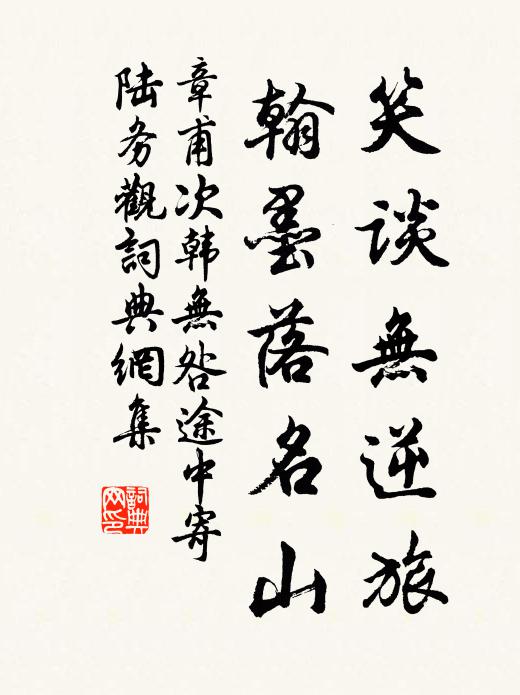 笑谈無逆旅
翰墨落名山
章甫次韩無咎途中寄
陆务觀詞典網集
詞典
网印